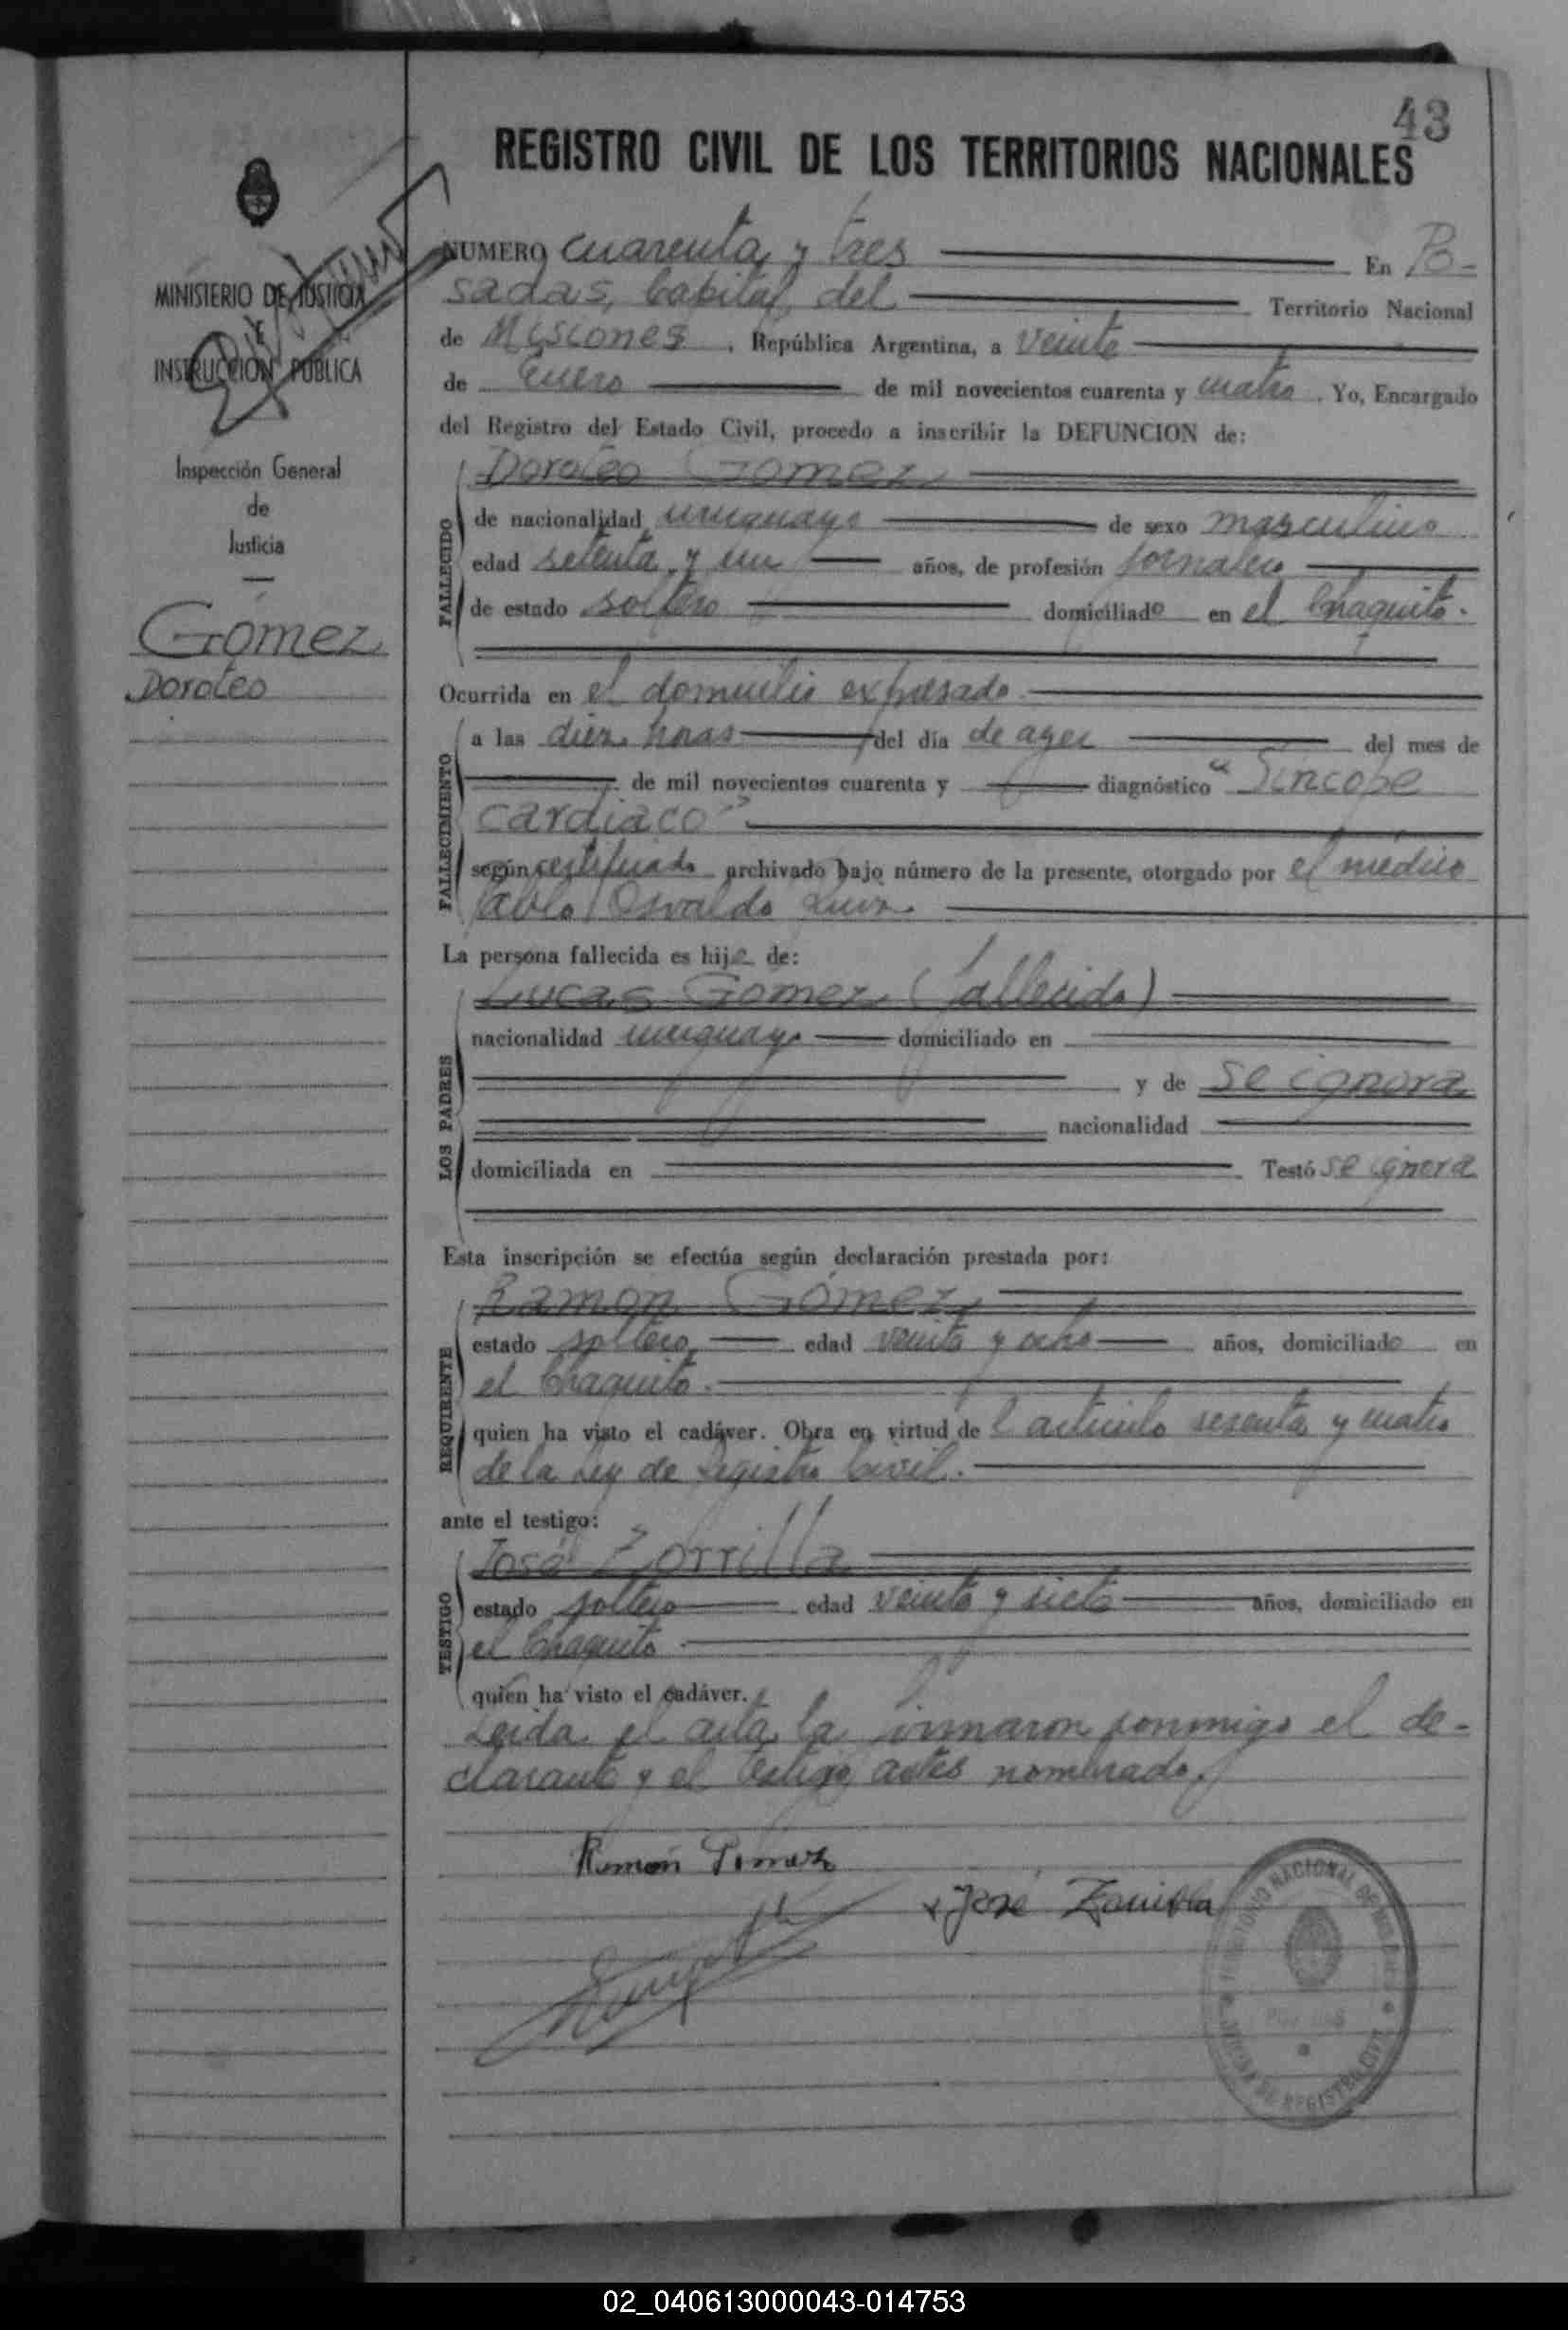 43
REGISTRO CIVIL DE LOS TERRITORIOS NACIONALES
MINISTERIO DE JUSTICIA
E
INSTRUCCION PUBLICA
Inspección General
de
Justicia
Gómez
Doroteo
NUMERO cuarenta y tres En Po-
sadas, Capital del Territorio Nacional
de Misiones, República Argentina, a veinte
de Enero de mil novecientos cuarenta y cuatro. Yo, Encargado
del Registro del Estado Civil, procedo a inscribir la DEFUNCION de:
FALLECIDO
Doroteo Gomez
de nacionalidad uruguayo de sexo masculino
edad setenta y un años, de profesión jornalero
de estado soltero domiciliado en el Chaquito.
Ocurrida en el domicilio expresado.
FALLECIMIENTO
a las diez horas del día de ayer del mes de
de mil novecientos cuarenta y diagnóstico "Síncope
cardiaco"
según certificado archivado bajo número de la presente, otorgado por el médico
Pablo Osvaldo
La persona fallecida es hijo de:
LOS PADRES
Lucas Gomez (fallecido)
nacionalidad uruguayo domiciliado en
y de se ignora
nacionalidad
domiciliada en Testó se ignora
Esta inscripción se efectúa según declaración prestada por:
REQUIRENTE
Ramón Gómez,
estado soltero, edad veinte y ocho años, domiciliado en
el Chaquito.
quien ha visto el cadáver. Obra en virtud de l artículo sesenta y cuatro
de la Ley de Registro Civil.
ante el testigo:
TESTIGO
José Zorrilla
estado soltero edad veinte y siete años, domiciliado en
el Chaquito.
quien ha visto el cadáver.
Leída el acta, la firmaron conmigo el de-
clarante y el testigo antes nombrado.
Ramón Gomez
José Zorrilla
TERRITORIO NACIONAL DE MISIONES
OFICINA DE REGISTRO CIVIL
02_040613000043-014753